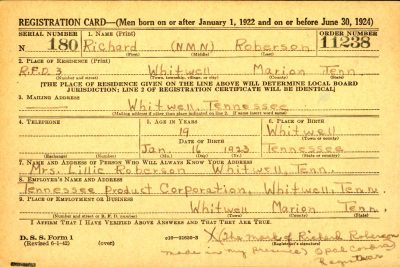 REGISTRATION CARD—(Men born on or after January 1, 1922 and on or before June 30, 1924)
SERIAL NUMBER 1. NAME (Print) ORDER NUMBER
N 180 Richard (NMN) Roberson 11238
(First) (Middle) (Last)
2. PLACE OF RESIDENCE (Print)
R.F.D. 3 Whitwell Marion Tenn.
(Number and street) (Town, township, village, or city) (County) (State)
[THE PLACE OF RESIDENCE GIVEN ON THE LINE ABOVE WILL DETERMINE LOCAL BOARD
JURISDICTION; LINE 2 OF REGISTRATION CERTIFICATE WILL BE IDENTICAL]
3. MAILING ADDRESS
Whitwell, Tennessee
[Mailing address if other than place indicated on line 2. If same insert word same]
4. TELEPHONE 5. AGE IN YEARS 6. PLACE OF BIRTH
19 Whitwell
DATE OF BIRTH (Town or county)
Jan. 16 1923 Tennessee
(Exchange) (Number) (Mo.) (Day) (Yr.) (State or country)
7. NAME AND ADDRESS OF PERSON WHO WILL ALWAYS KNOW YOUR ADDRESS
Mrs. Lillie Roberson Whitwell, Tenn.
8. EMPLOYER'S NAME AND ADDRESS
Tennessee Product Corporation, Whitwell, Tenn.
9. PLACE OF EMPLOYMENT OR BUSINESS
Whitwell Marion Tenn.
(Number and street or R. F. D. number) (Town) (County) (State)
I AFFIRM THAT I HAVE VERIFIED ABOVE ANSWERS AND THAT THEY ARE TRUE.
D. S. S. Form 1
(Revised 6-1-42) (over)
X (the mark of Richard Roberson
(Registrant's signature)
made in my presence) Opal
Registrar